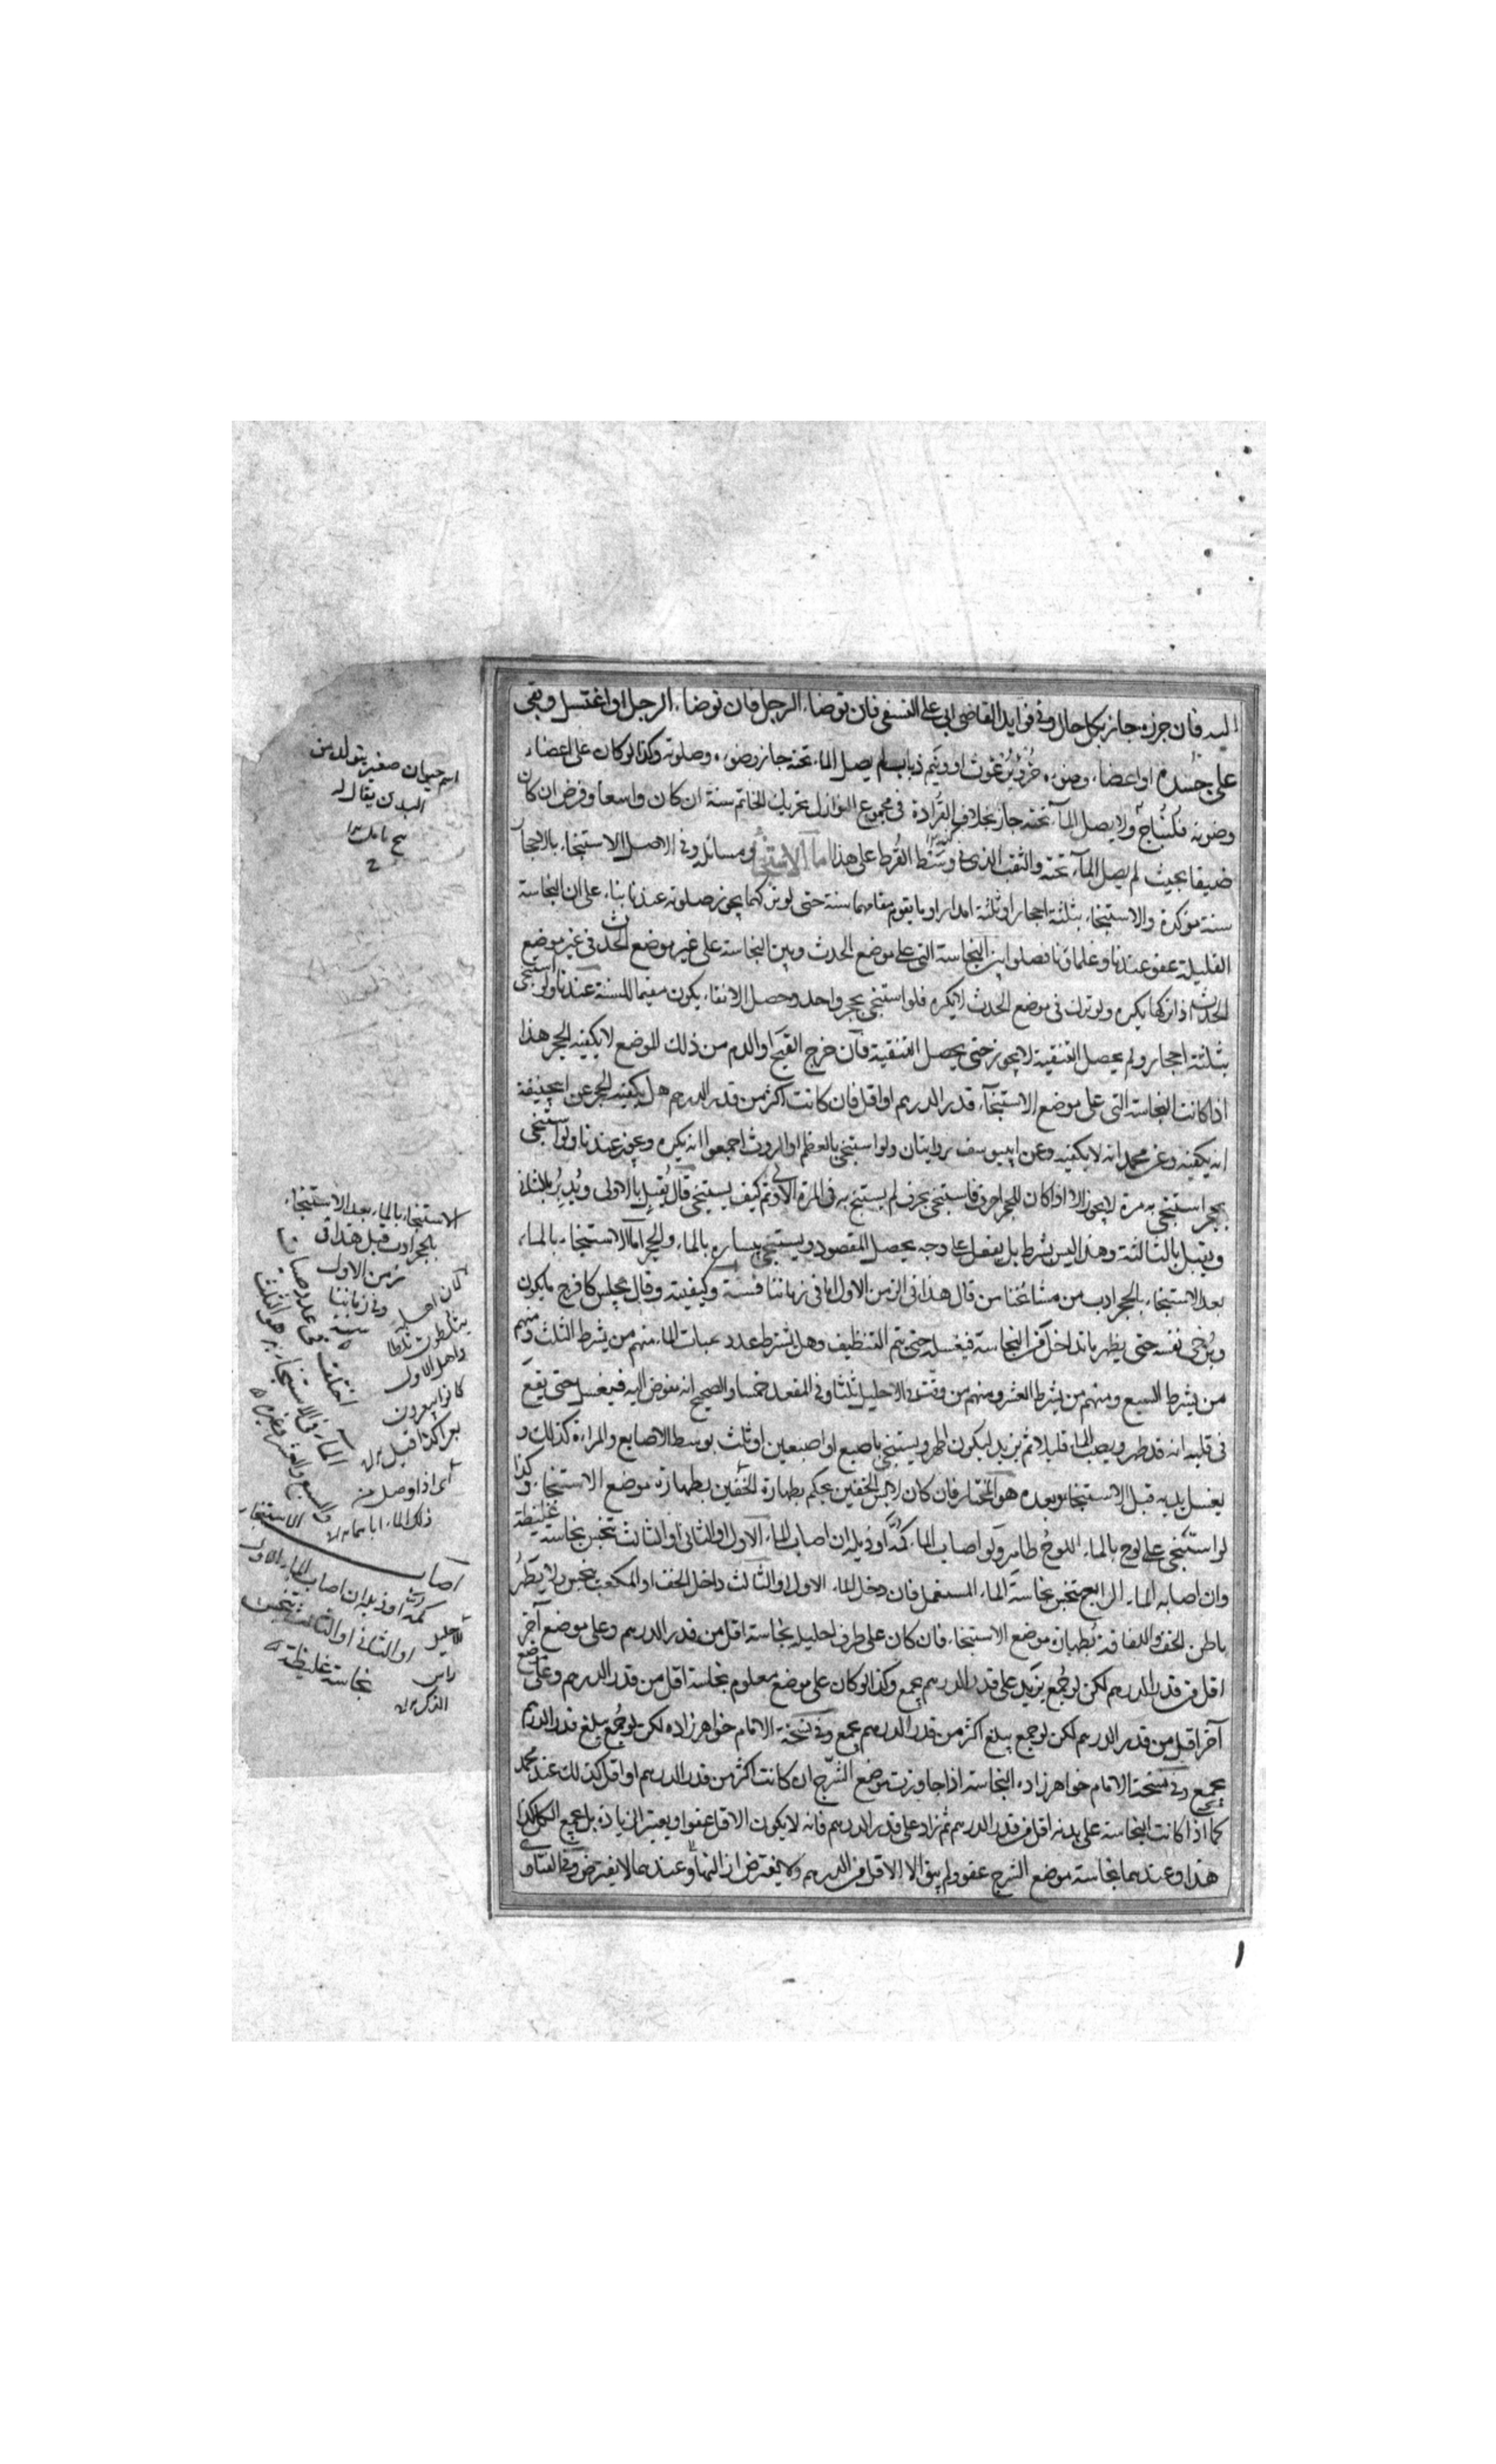 اليه فان جزه جاز بكل حال وفي فوايد القاضي ابي علي النسفي فان توضاء الرجل فان توضاء الرجل او اغتسل وبقي
على جسده او اعضاء وضوءه خرء برغوث او ونيم ذباب لم يصل الماء تحته جاز وضوءه وصلوته وكذا لو كان على اعضاء
وضوئه ولا يصل الماء تحته جاز بخلاف القرادة في مجموع النوازل تحريك الخاتم سنة ان كان واسعا وفرض ان كان
ضيقا بحيث لم يصل الماء تحته والثقب الذي في القرط على هذا اما الاستنجاء ومسائله وفي الاصل الاستنجاء بالاحجار
سنة مؤكدة والاستنجاء بثلثة احجار او ثلثة امدار او ما يقوم مقامهما سنة حتى لو تركهما يجوز صلوته عندنا بناء على ان النجاسة
القليلة عفو عندنا وعلماؤنا فصلوا بين النجاسة التي على موضع الحدث وبين النجاسة على غير موضع الحدث في غير موضع
الحدث اذا تركها يكره ولو ترك في موضع الحدث لا يكره فلو استنجى بحجر واحد وحصل الانقاء يكون مقيما للسنة عندنا ولو استنجى
بثلثة احجار ولم يحصل التنقية لا يجوز حتى يحصل التنقية فان خرج القيح او الدم من ذلك الموضع لا يكفيه الحجر هذا
اذا كانت النجاسة التي على موضع الاستنجاء قدر الدرهم او اقل فان كانت اكثر من قدر الدرهم هل يكفيه الحجر عن ابي حنيفة
انه يكفيه وعن محمد انه لا يكفيه وعن ابي يوسف روايتان ولو استنجى بالعظم او الروث اجمعوا انه يكره ويجوز عندنا ولو استنجى
بحجر استنجى به مرة لا يجوز الا اذا كان للحجر احرف فاستنجى بحرف لم يستنج به في المرة الاولى ثم كيف يستنجي قال يقبل بالاولى ويدبر بالثانية
ويقبل بالثالثة وهذا ليس بشرط بل يفعل على وجه يحصل المقصود ويستنجي بيساره بالماء والحجر اما الاستنجاء بالماء
بعد الاستنجاء بالحجر ادب من مشائخنا من قال هذا في الزمن الاول اما في زماننا فسنة وكيفيته وقال يجلس كافرج ما يكون
ويرخي نفسه حتى يظهر ما تداخل من النجاسة فيغسله حتى يتم التنظيف وهل يشترط عدد صبات الماء منهم من يشرط الثلث ومنهم
من يشرط السبع ومنهم من يشرط العشر ومنهم من وقت في الاحليل ثلثا وفي المقعد خمسا والصحيح انه مفوض اليه فيغسل حتى يقع
في قلبه انه قد طهر ويصب الماء قليلا ثم يزيد ليكون اطهر ويستنجي باصبع او اصبعين او ثلث بوسط الاصابع والمراءة كذلك و
يغسل يديه قبل الاستنجاء وبعده هو المختار فان كان لابس الخفين يحكم بطهارة الخفين بطهارة موضع الاستنجاء وكذا
لو استنجى على لوح بالماء اللوح طاهر ولو اصاب الماء كمه او ذيله ان اصاب الماء الاول او الثاني او الثالث تنجس نجاسة غليظة
وان اصابه الماء الرابع تنجس نجاسة الماء المستعمل فان دخل الماء الاول او الثالث داخل الخف او المكعب تنجس ولا يطهر
باطن الخف واللفافة بطهارة موضع الاستنجاء فان كان على طرف احليله نجاسة اقل من قدر الدرهم وعلى موضع آخر
اقل من قدر الدرهم لكن لو جمع يزيد على قدر الدرهم يجمع وكذا لو كان على موضع معلوم نجاسة اقل من قدر الدرهم وعلى موضع
آخر اقل من قدر الدرهم لكن لو جمع يبلغ اكثر من قدر الدرهم يجمع وفي نسخة الامام خواهرزاده لكن لو جمع يبلغ قدر الدرهم
يجمع وفي نسخة الامام خواهرزاده النجاسة اذا جاوزت موضع الشرج ان كانت اكثر من قدر الدرهم او اقل كذلك عند محمد
كما اذا كانت النجاسة على بدنه اقل من قدر الدرهم ثم زاد على قدر الدرهم فانه لا يكون الاقل عفوا ويعتبر الزيادة بل يجمع الكل كذا
هذا وعندهما نجاسة موضع الشرج عفو ولم يبق الا الاقل من الدرهم ولا يفترض ازالتها وعندهما لا يفترض وفي الفتاوى
اسم حيوان صغير يتولد من
البدن يقال له
الاستنجاء بالماء بعد الاستنجاء
بالحجر ادب قيل هذا في
زمن الاول
وفي زماننا
سنة
واهل الاول
كانوا يبعرون
بعرا كذا قيل
اي اذا وصل منه
ذلك الماء
اختلف في عدد صبات
الماء في الاستنجاء هو الثلث
والسبع والعشر وغيره
اصاب
كمه او ذيله ان اصاب الماء الاول
او الثاني او الثالث تنجس
نجاسة غليظة
الاحليل
راس
الذكر
١